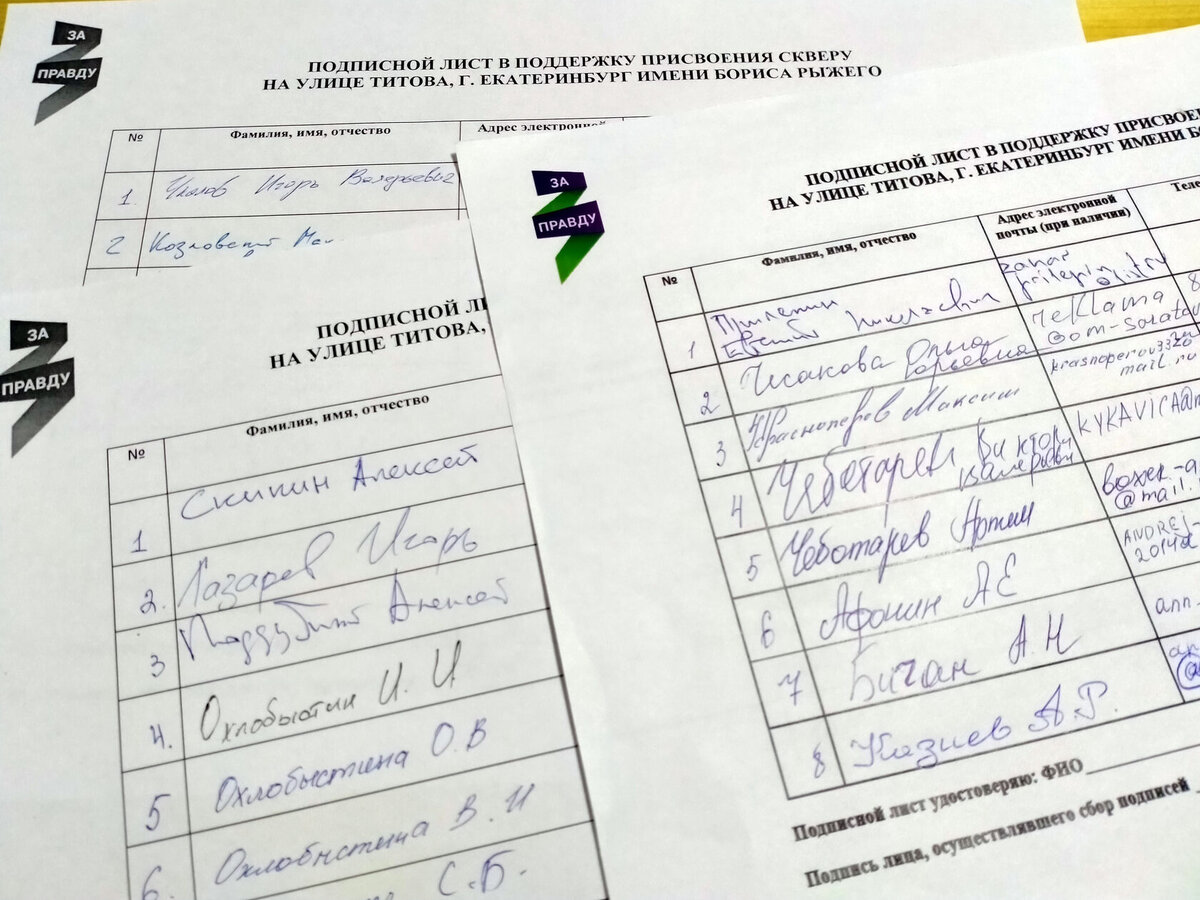 ЗА
ПРАВДУ
ПОДПИСНОЙ ЛИСТ В ПОДДЕРЖКУ ПРИСВОЕНИЯ СКВЕРУ
НА УЛИЦЕ ТИТОВА, Г. ЕКАТЕРИНБУРГ ИМЕНИ БОРИСА РЫЖЕГО
№ Фамилия, имя, отчество Адрес электронной
1. Игорь Валерьевич
2 Козловский
ЗА
ПРАВДУ
ПОДПИСНОЙ
НА УЛИЦЕ ТИТОВА,
№ Фамилия, имя, отчество
1 Скипин Алексей
2. Лазарев Игорь
3 Поддубный Алексей
4. Охлобыстин И. И
5 Охлобыстина О.В
6. Охлобыстина В. И
С.Б.
ЗА
ПРАВДУ
ПОДПИСНОЙ ЛИСТ В ПОДДЕРЖКУ ПРИСВОЕ
НА УЛИЦЕ ТИТОВА, Г. ЕКАТЕРИНБУРГ ИМЕНИ БО
№ Фамилия, имя, отчество Адрес электронной
почты (при наличии) Теле
1 Прилепин
Евгений Николаевич
2 Чисакова Ольга
Юрьевна reklama
3 Красноперов Максим krasnoperov3328
mail.ru
4 Чеботарев Виктор
Валерьевич KYKAVICA@m
5 Чеботарев Артем
@mail.
6 Афонин А Е ANDREJ-
2014a
7 Бичан А.Н ann.
8 Казиев А.Р.
Подписной лист удостоверяю: ФИО
Подпись лица, осуществлявшего сбор подписей